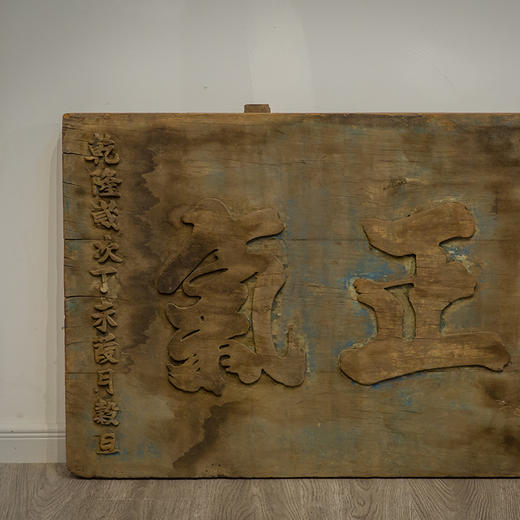 正氣
乾隆歲次丁未葭月穀旦